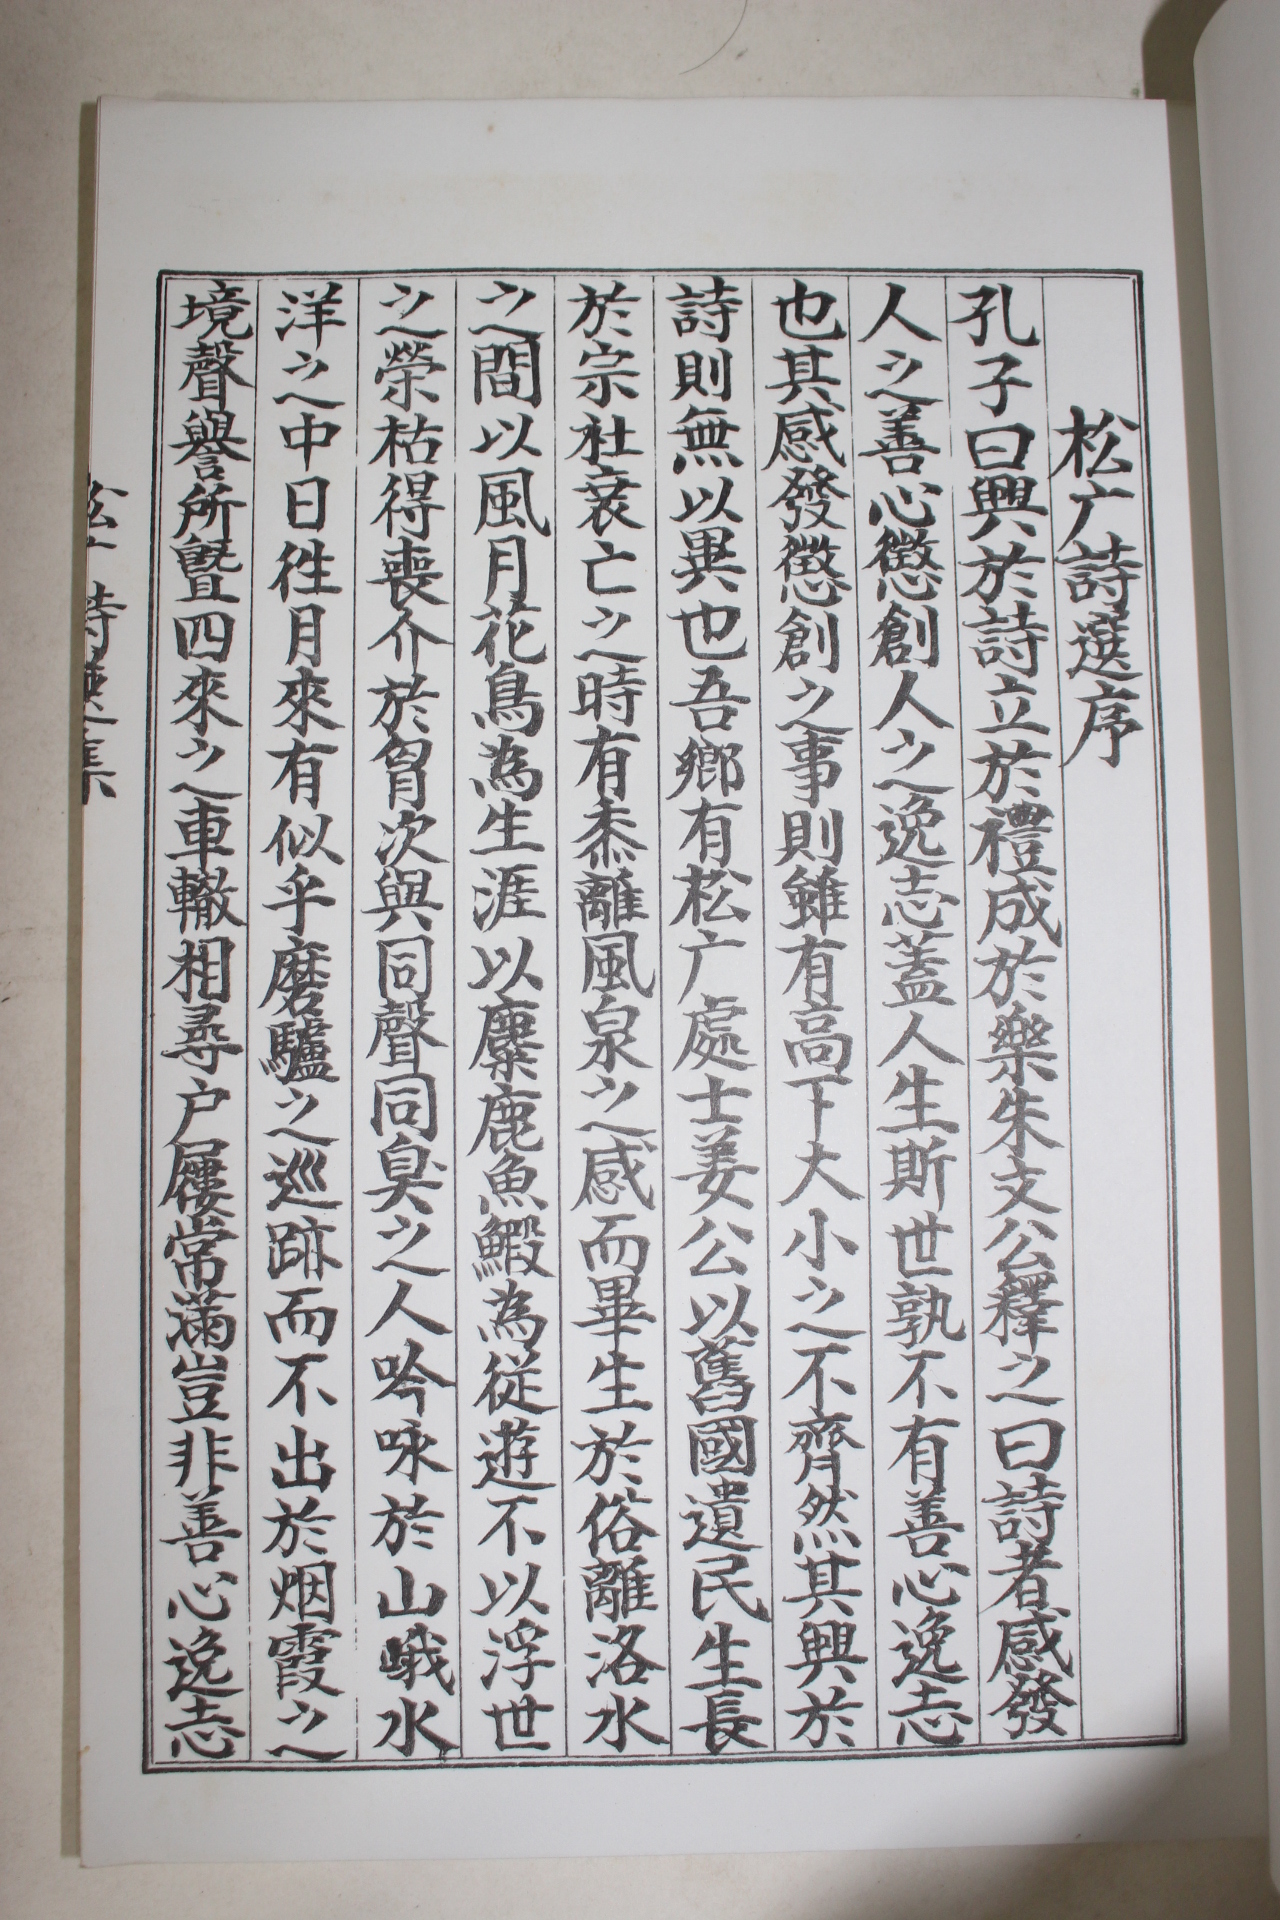 松广詩選序
孔子曰興於詩立於禮成於樂朱文公釋之曰詩者感發
人之善心懲創人之逸志蓋人生斯世孰不有善心逸志
也其感發懲創之事則雖有高下大小之不齊然其興於
詩則無以異也吾鄉有松广處士姜公以舊國遺民生長
於宗社衰亡之時有黍離風泉之感而畢生於俗離洛水
之間以風月花鳥為生涯以麋鹿魚鰕為從遊不以浮世
之榮枯得喪介於胷次與同聲同臭之人吟咏於山峨水
洋之中日徃月來有似乎磨驢之巡跡而不出於烟霞之
境聲譽所曁四來之車轍相尋户屨常滿豈非善心逸志